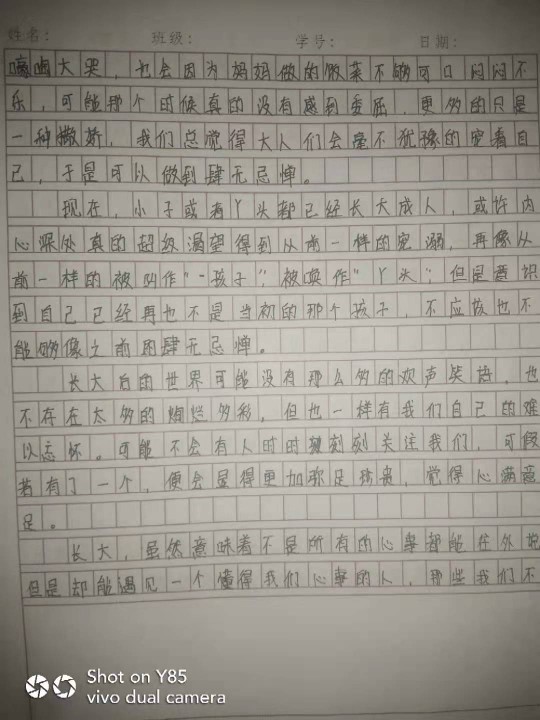 姓名： 班级： 学号： 日期：
嚎啕大哭，也会因为妈妈做的饭菜不够可口闷闷不
乐，可能那个时候真的没有感到委屈，更多的只是
一种撒娇，我们总觉得大人们会毫不犹豫的宠着自
己，于是可以做到肆无忌惮。
现在，小子或者丫头都已经长大成人，或许内
心深处真的超级渴望得到从前一样的宠溺，再像从
前一样的被叫作"孩子"，被唤作"丫头"，但是意识
到自己已经再也不是当初的那个孩子，不应该也不
能够像之前的肆无忌惮。
长大后的世界可能没有那么多的欢声笑语，也
不存在太多的绚烂多彩，但也一样有我们自己的难
以忘怀。可能不会有人时时刻刻关注我们，可假
若有了一个，便会显得更加弥足珍贵，觉得心满意
足。
长大，虽然意味着不是所有的心事都能往外说
但是却能遇见一个懂得我们心事的人，那些我们不
Shot on Y85
vivo dual camera